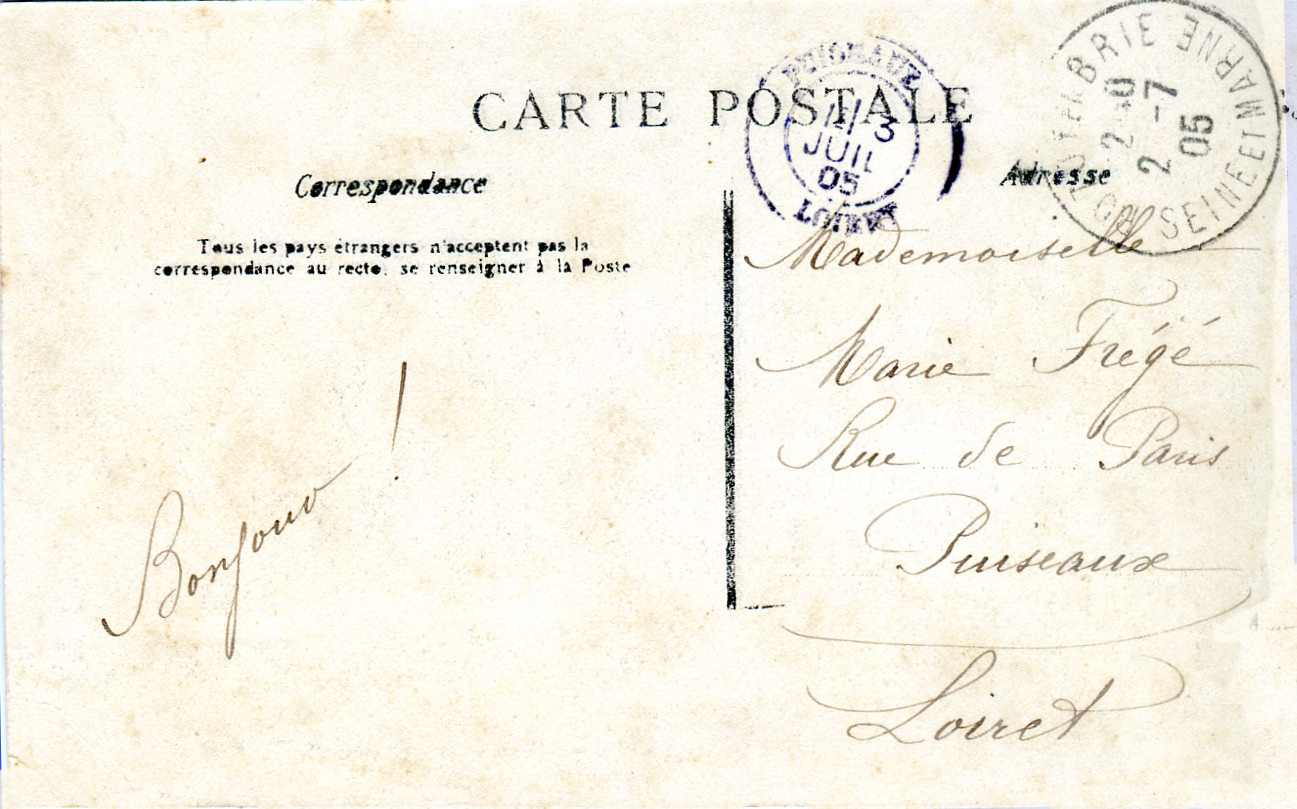 CARTE POSTALE
PUISEAUX
3
JUIL
05
LOIRET
BRIE
SEINE ET MARNE
2 40
2 -7
05
Correspondance
Adresse
Tous les pays étrangers n'acceptent pas la
correspondance au recto, se renseigner à la Poste
Bonjour !
Mademoiselle
Marie Frégé
Rue de Paris
Puiseaux
Loiret